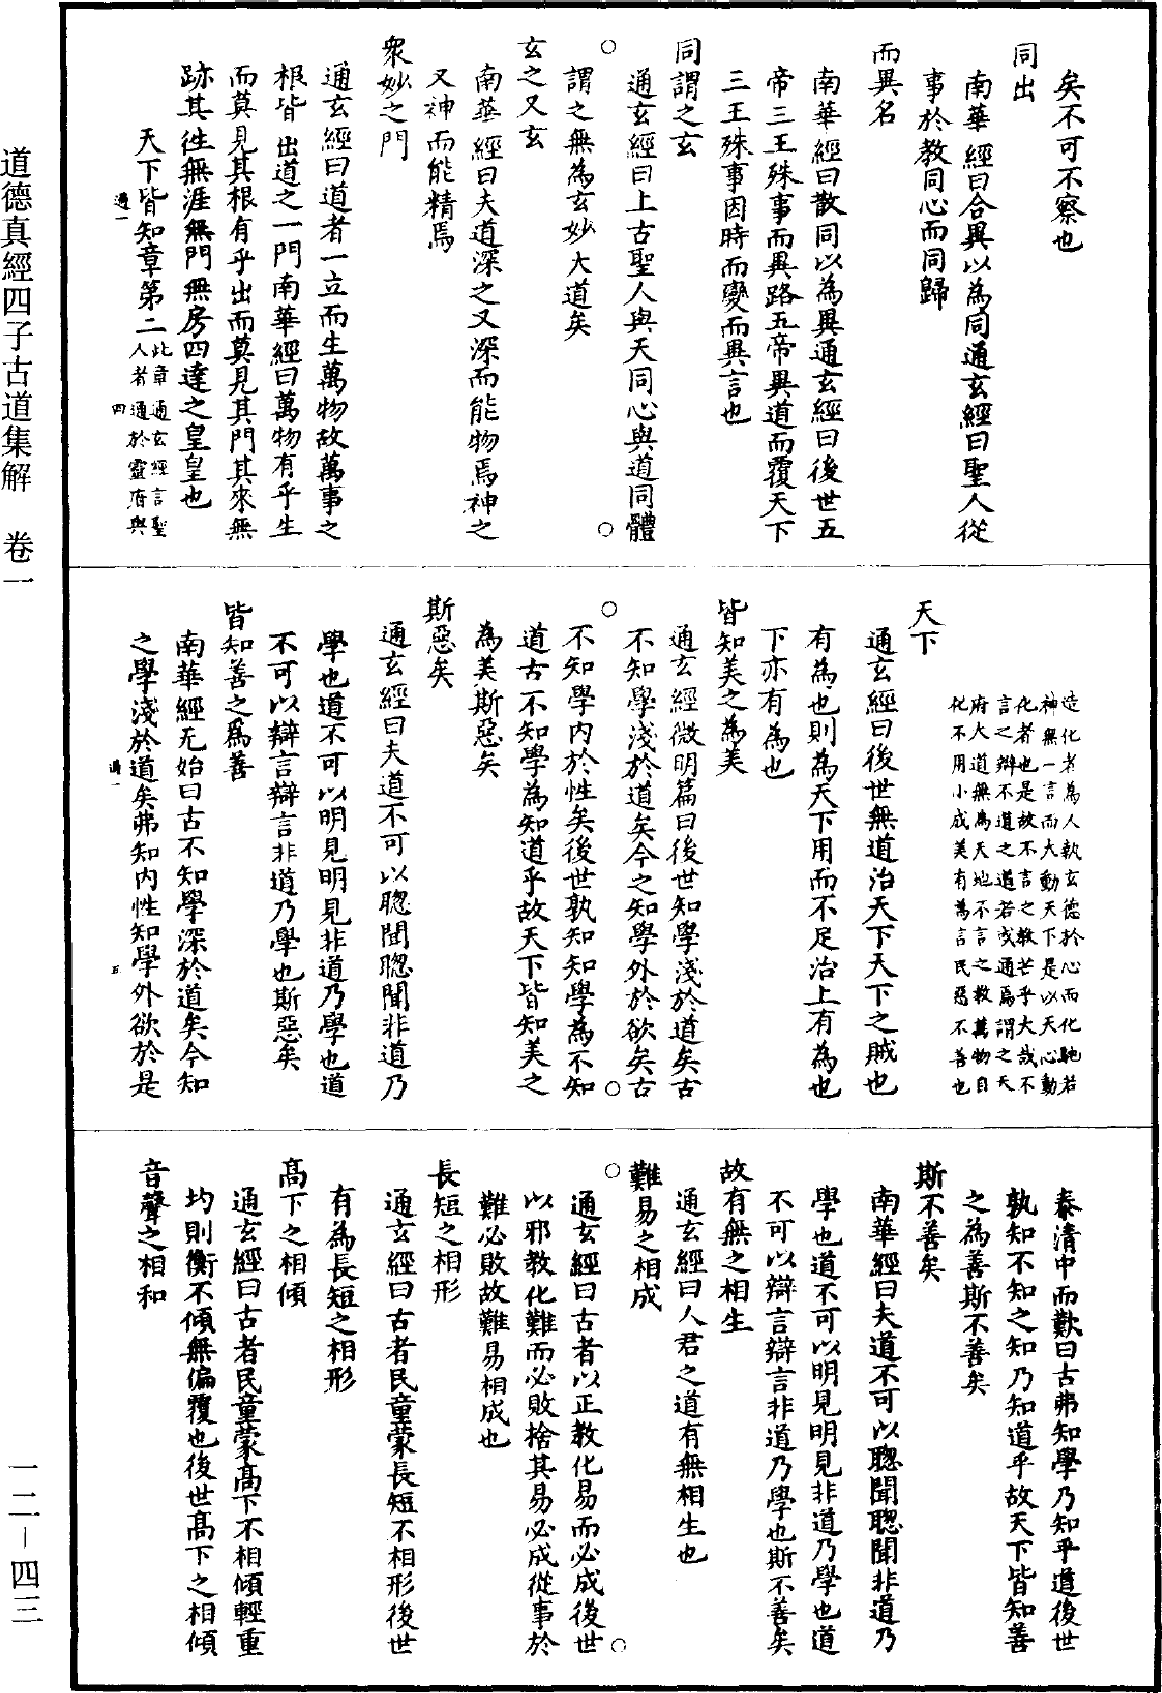 矣不可不察也
同出
南華經曰合異以為同通玄經曰聖人從
事於教同心而同歸
而異名
南華經曰散同以為異通玄經曰後世五
帝三王殊事而異路五帝異道而覆天下
三王殊事因時而變而異言也
同謂之玄
通玄經曰上古聖人與天同心與道同體
謂之無為玄妙大道矣
玄之又玄
南華經曰夫道深之又深而能物焉神之
又神而能精焉
衆妙之門
通玄經曰道者一立而生萬物故萬事之
根皆出道之一門南華經曰萬物有乎生
而莫見其根有乎出而莫見其門其來無
跡其徃無涯無門無房四達之皇皇也
天下皆知章第二
此章通玄經言聖
人者通於靈府與
過一
四
造化者為人執玄德於心而化馳若
神無一言而大動天下是以天心動
化者也是故不言之教芒乎大哉不
言之辯不道之道若或通焉謂之天
府大道無為天地不言之教萬物自
化不用小成美有萬言民惡不善也
天下
通玄經曰後世無道治天下天下之賊也
有為也則為天下用而不足治上有為也
下亦有為也
皆知美之為美
通玄經微明篇曰後世知學淺於道矣古
不知學淺於道矣今之知學外於欲矣古
不知學內於性矣後世孰知知學為不知
道古不知學為知道乎故天下皆知美之
為美斯惡矣
斯惡矣
通玄經曰夫道不可以聰聞聰聞非道乃
學也道不可以明見明見非道乃學也道
不可以辯言辯言非道乃學也斯惡矣
皆知善之為善
南華經无始曰古不知學深於道矣今知
之學淺於道矣弗知內性知學外欲於是
過一
五
泰清中而歎曰古弗知學乃知乎道後世
孰知不知之知乃知道乎故天下皆知善
之為善斯不善矣
斯不善矣
南華經曰夫道不可以聰聞聰聞非道乃
學也道不可以明見明見非道乃學也道
不可以辯言辯言非道乃學也斯不善矣
故有無之相生
通玄經曰人君之道有無相生也
難易之相成
通玄經曰古者以正教化易而必成後世
以邪教化難而必敗捨其易必成從事於
難必敗故難易相成也
長短之相形
通玄經曰古者民童蒙長短不相形後世
有為長短之相形
高下之相傾
通玄經曰古者民童蒙高下不相傾輕重
均則衡不傾無偏覆也後世高下之相傾
音聲之相和
道德真經四子古道集解 卷一
一二－四三